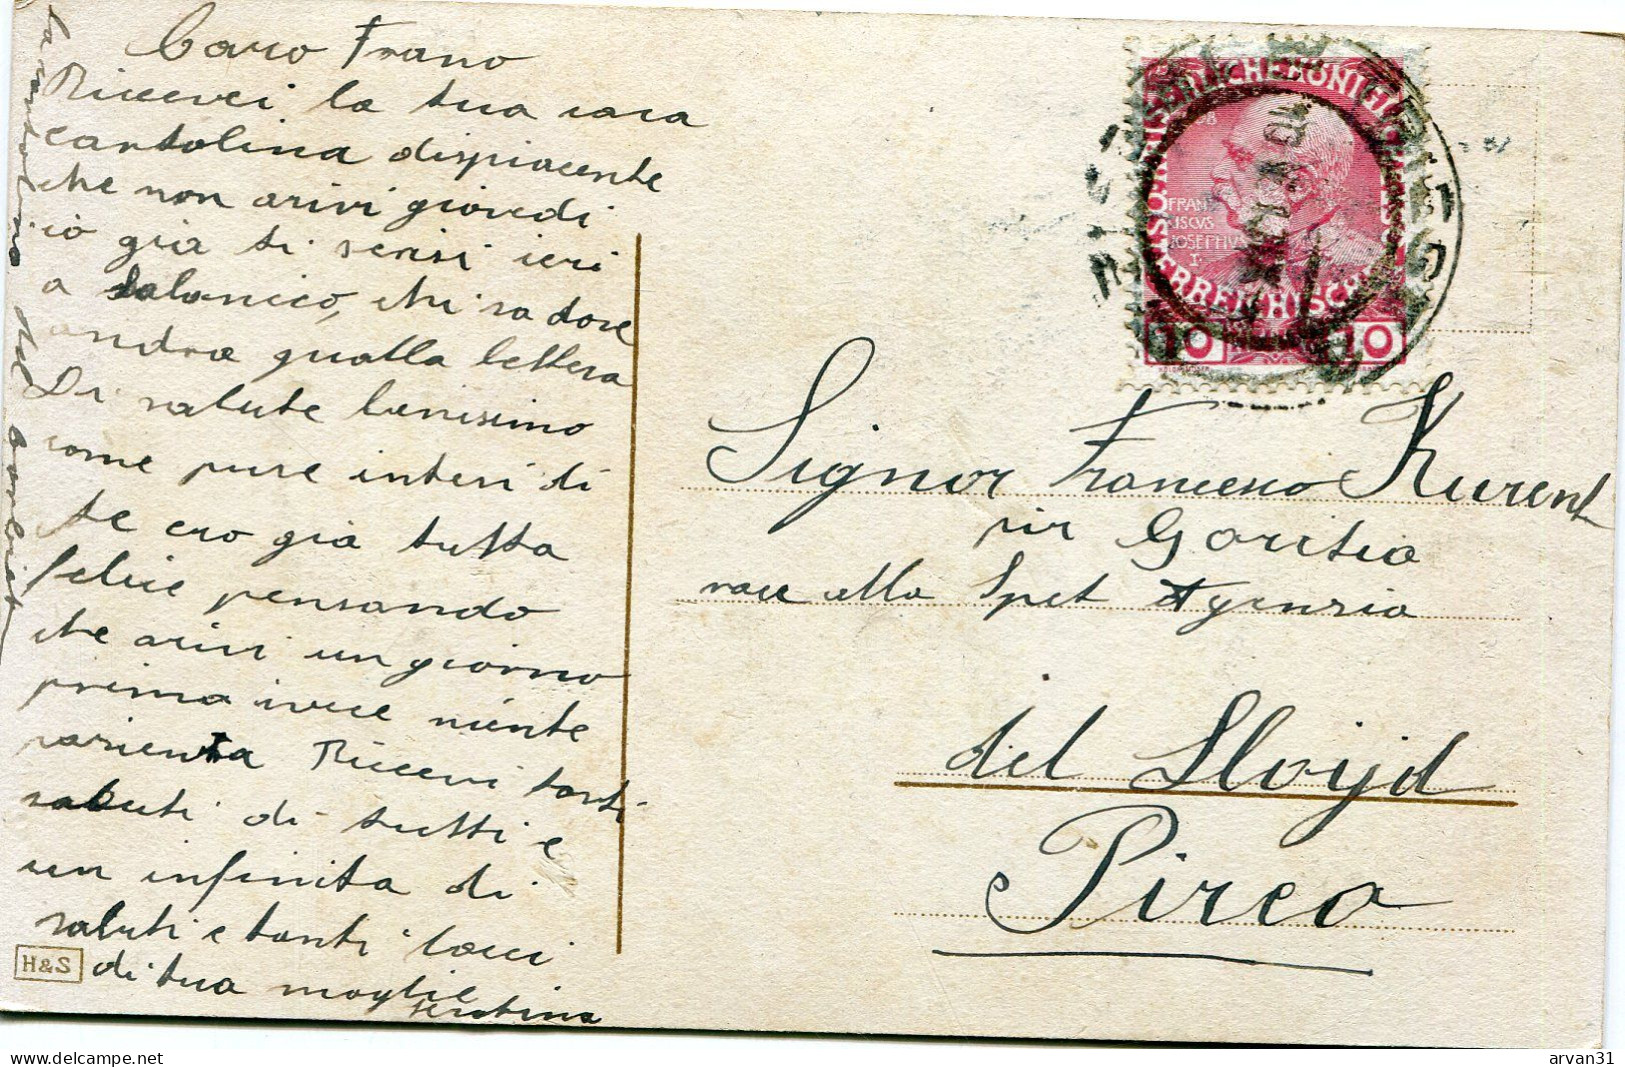 Caro Frano
Ricevei la tua cara
cartolina dispiacente
che non arivi giovedi
io gia ti scrisi ieri
a Salonico, chi sa dove
andra quella lettera
Di salute benissimo
come pure interi di
te ero gia tutta
felice pensando
che arivi un giorno
prima ivece niente
pazienza Ricevi tanti
saluti di tutti e
un infinita di
saluti e tanti bacci
di tua moglie
Serafina
la cartolina del
H&S
KAISERLICHE KÖNIGLICHE
ÖSTERREICHISCHE
FRAN
ISCVS
IOSEPHVS
I
10 10
TRIESTE
Signor Francesco Kurent
sir Goritia
race alla Spet Agensia
del Lloijd
Pireo
delcampe.net
arvan31